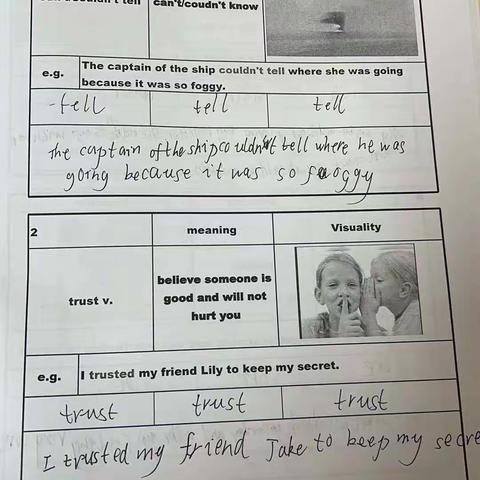 can't/coudn't know
e.g. The captain of the ship couldn't tell where she was going
because it was so foggy.
tell tell tell
The captain of the ship couldn't tell where he was
going because it was so foggy
2 meaning Visuality
trust v. believe someone is
good and will not
hurt you
e.g. I trusted my friend Lily to keep my secret.
trust trust trust
I trusted my friend Jake to keep my secre